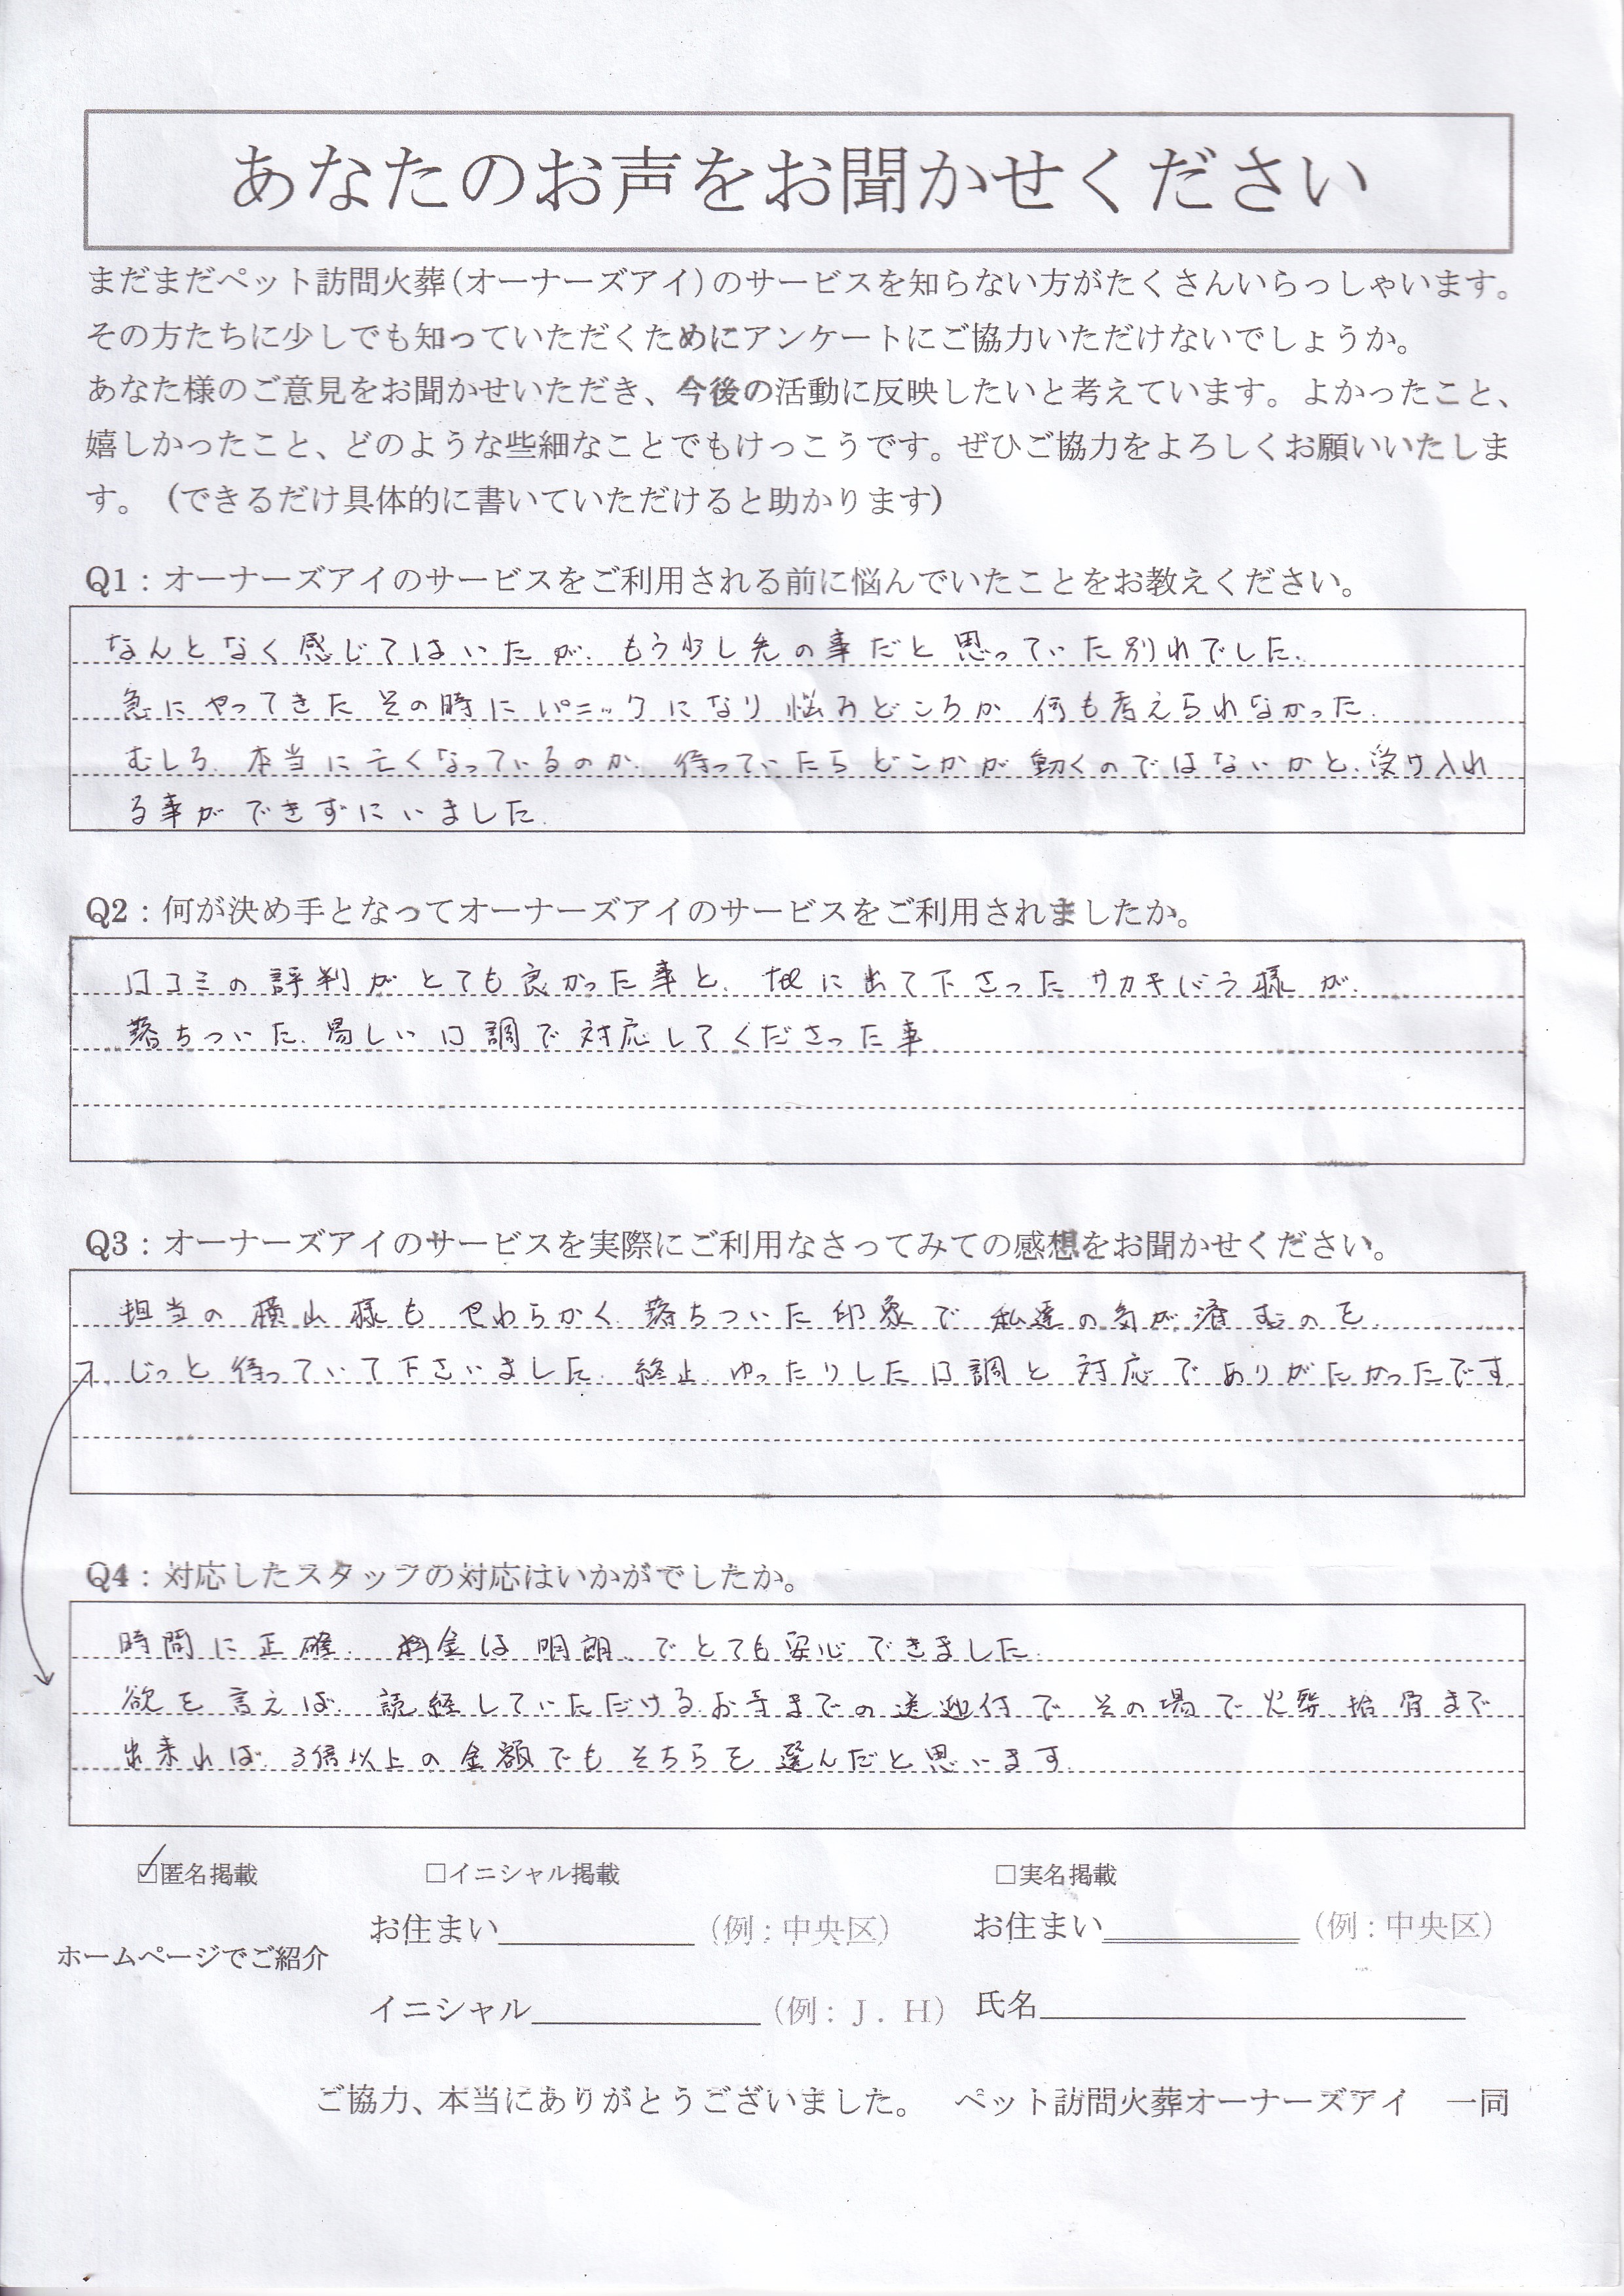 あなたのお声をお聞かせください
まだまだペット訪問火葬(オーナーズアイ)のサービスを知らない方がたくさんいらっしゃいます。
その方たちに少しでも知っていただくためにアンケートにご協力いただけないでしょうか。
あなた様のご意見をお聞かせいただき、今後の活動に反映したいと考えています。よかったこと、
嬉しかったこと、どのような些細なことでもけっこうです。ぜひご協力をよろしくお願いいたしま
す。（できるだけ具体的に書いていただけると助かります）
Q1：オーナーズアイのサービスをご利用される前に悩んでいたことをお教えください。
なんとなく感じてはいたが、もう少し先の事だと思っていた別れでした。
急にやってきたその時にパニックになり悩みどころか何も考えられなかった。
むしろ、本当に亡くなっているのか、待っていたらどこかが動くのではないかと、受け入れ
る事ができずにいました。
Q2：何が決め手となってオーナーズアイのサービスをご利用されましたか。
口コミの評判がとても良かった事と、に出て下さったサカキバラ様が、
落ちついた、い口調で対応してくださった事
Q3：オーナーズアイのサービスを実際にご利用なさってみての感想をお聞かせください。
担当の横山様もやわらかく、落ちついた印象で私達の気が済むのを、
じっと待っていて下さいました。終止、ゆったりした口調と対応でありがたかったです
Q4：対応したスタッフの対応はいかがでしたか。
時間に正確、料金は明朗、でとても安心できました。
欲を言えば、読経していただけるお寺までの送迎付で、その場で火葬、拾骨まで
出来れば、3倍以上の金額でもそちらを選んだと思います。
☑匿名掲載 □イニシャル掲載 □実名掲載
お住まい （例：中央区） お住まい （例：中央区）
ホームページでご紹介
イニシャル （例：J．H） 氏名
ご協力、本当にありがとうございました。 ペット訪問火葬オーナーズアイ 一同